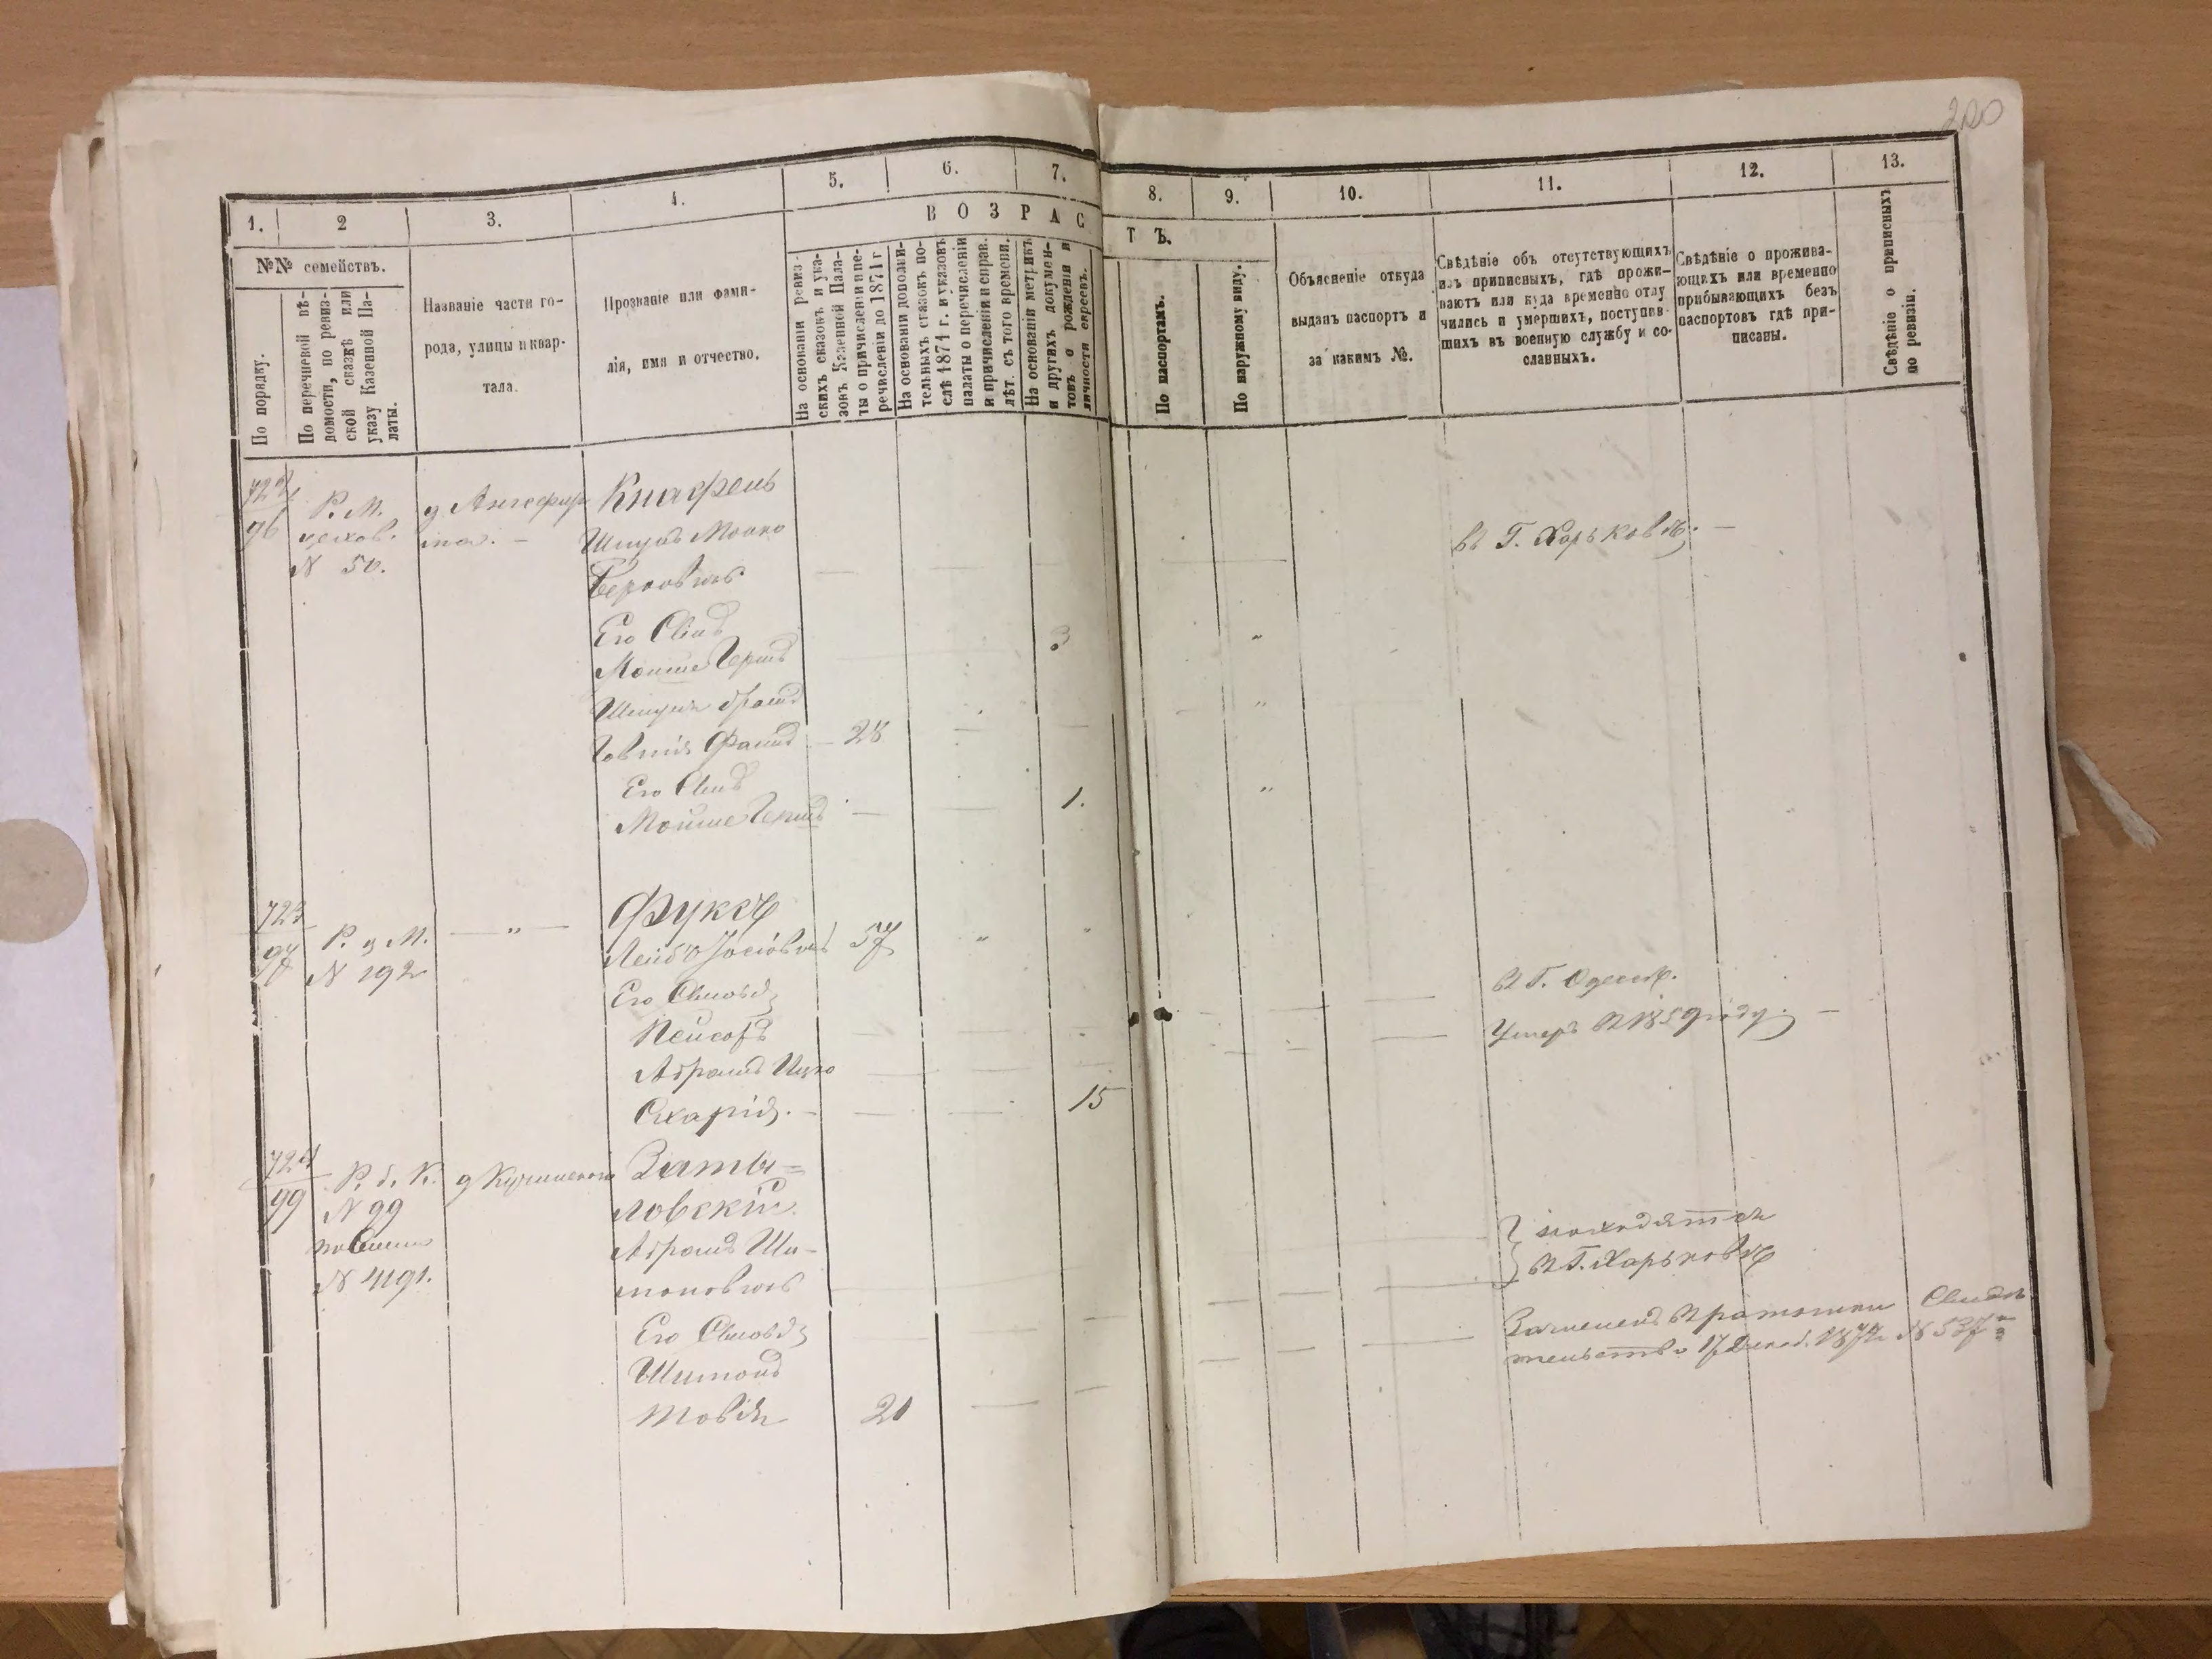 220
1. 2 3. 4. 5. 6. 7. 8. 9. 10. 11. 12. 13.
В О З Р А С Т Ъ.
№№ семействъ.
По порядку.
По перечневой вѣ-
домости, по ревиз-
ской сказкѣ или
указу Казенной Па-
латы.
Названіе части го-
рода, улицы и квар-
тала.
Прозваніе или фами-
лія, имя и отчество.
На основаніи ревиз-
скихъ сказокъ и ука-
зовъ Казенной Пала-
ты о причисленіи и пе-
речисленіи до 1871 г.
На основаніи дополни-
тельныхъ сказокъ по-
слѣ 1871 г. и указовъ
палаты о перечисленіи
и причисленіи и справ.
лѣт. съ того времени.
На основаніи метрикъ
и другихъ докумен-
товъ о рожденіи и
личности евреевъ.
По паспортамъ.
По наружному виду.
Объясненіе откуда
выданъ паспортъ и
за какимъ №.
Свѣдѣніе объ отсутствующихъ
изъ приписныхъ, гдѣ прожи-
ваютъ или куда временно отлу
чились и умершихъ, поступив-
шихъ въ военную службу и со-
сланныхъ.
Свѣдѣніе о прожива-
ющихъ или временно
прибывающихъ безъ
паспортовъ гдѣ при-
писаны.
Свѣдѣніе о приписныхъ
по ревизіи.
722
96
Р. М.
цехов.
N 50.
Кнафель
Шмуль Мошко
Берковичъ
въ Г. Харьковѣ. —
Его Сынъ
Мойше Герш 3
Шмуля братъ
28
Его Сынъ
Мойше Герш 1.
723
97
Р. ц М.
N 192
— " —
Фуксъ
Лейба Іосіовичъ 57
Его Сыновья
въ Г. Одессѣ.
Пейсахъ
Умеръ въ 1859 году. —
Абрамъ Ицко
Схарія. — 15
724
99
Р. б. К.
N 99
N 4191.
Заты=
ловскій
Абрамъ Ши-
моновичъ
находятся
въ Г. Харьковѣ
Его Сыновья
Шимонъ
Товія 21
17 Декаб. 1874 N 537